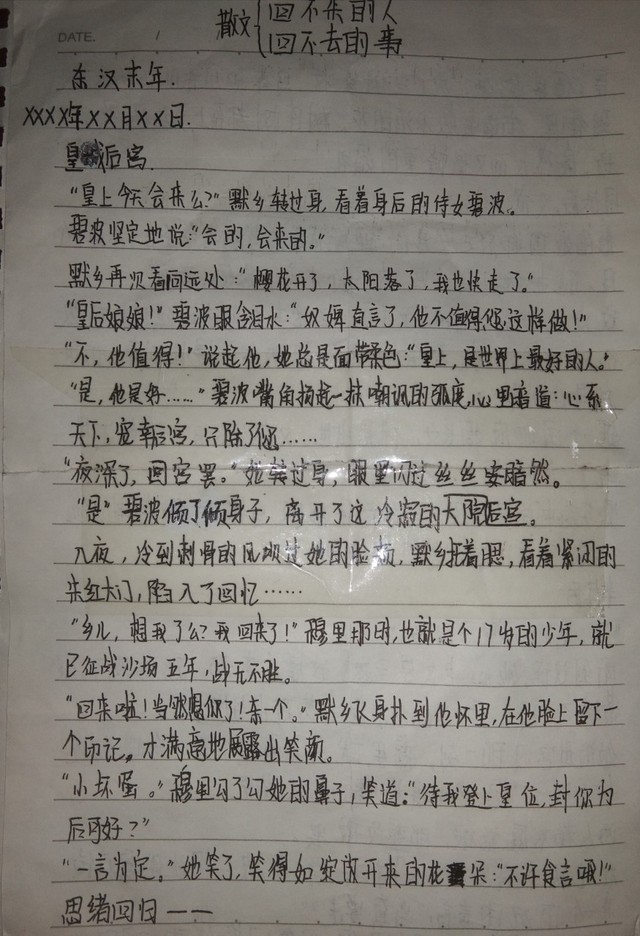 散文{回不来的人
回不去的事
DATE. /
东汉末年.
XXXX年XX月XX日.
皇城后宫.
“皇上今天会来么?”默乡转过身,看着身后的侍女碧波。
碧波坚定地说:“会的,会来的。”
默乡再次看向远处:“樱花开了,太阳落了,我也快走了。”
“皇后娘娘!”碧波眼含泪水:“奴婢直言了,他不值得您这样做!”
“不,他值得!”说起他,她总是面带柔色:“皇上,是世界上最好的人。”
“是,他是好……”碧波嘴角扬起一抹嘲讽的弧度,心里暗道:心系
天下,宠幸后宫,只除了您……
“夜深了,回宫罢。”她转过身,眼里闪过丝丝黯然。
“是”碧波倾了倾身子,离开了这冷寂的大院后宫。
入夜,冷到刺骨的风吹过她的脸颊,默乡托着腮,看着紧闭的
朱红大门,陷入了回忆……
“乡儿,想我了么?我回来了!”穆里那时,也就是个17岁的少年,就
已征战沙场五年,战无不胜。
“回来啦!当然想你了!亲一个。”默乡飞身扑到他怀里,在他脸上留下一
个印记,才满意地展露出笑颜。
“小坏蛋。”穆里勾了勾她的鼻子,笑道:“待我登上皇位,封你为
后可好?”
“一言为定。”她笑了,笑得如绽放开来的花朵:“不许食言哦!”
思绪回归——